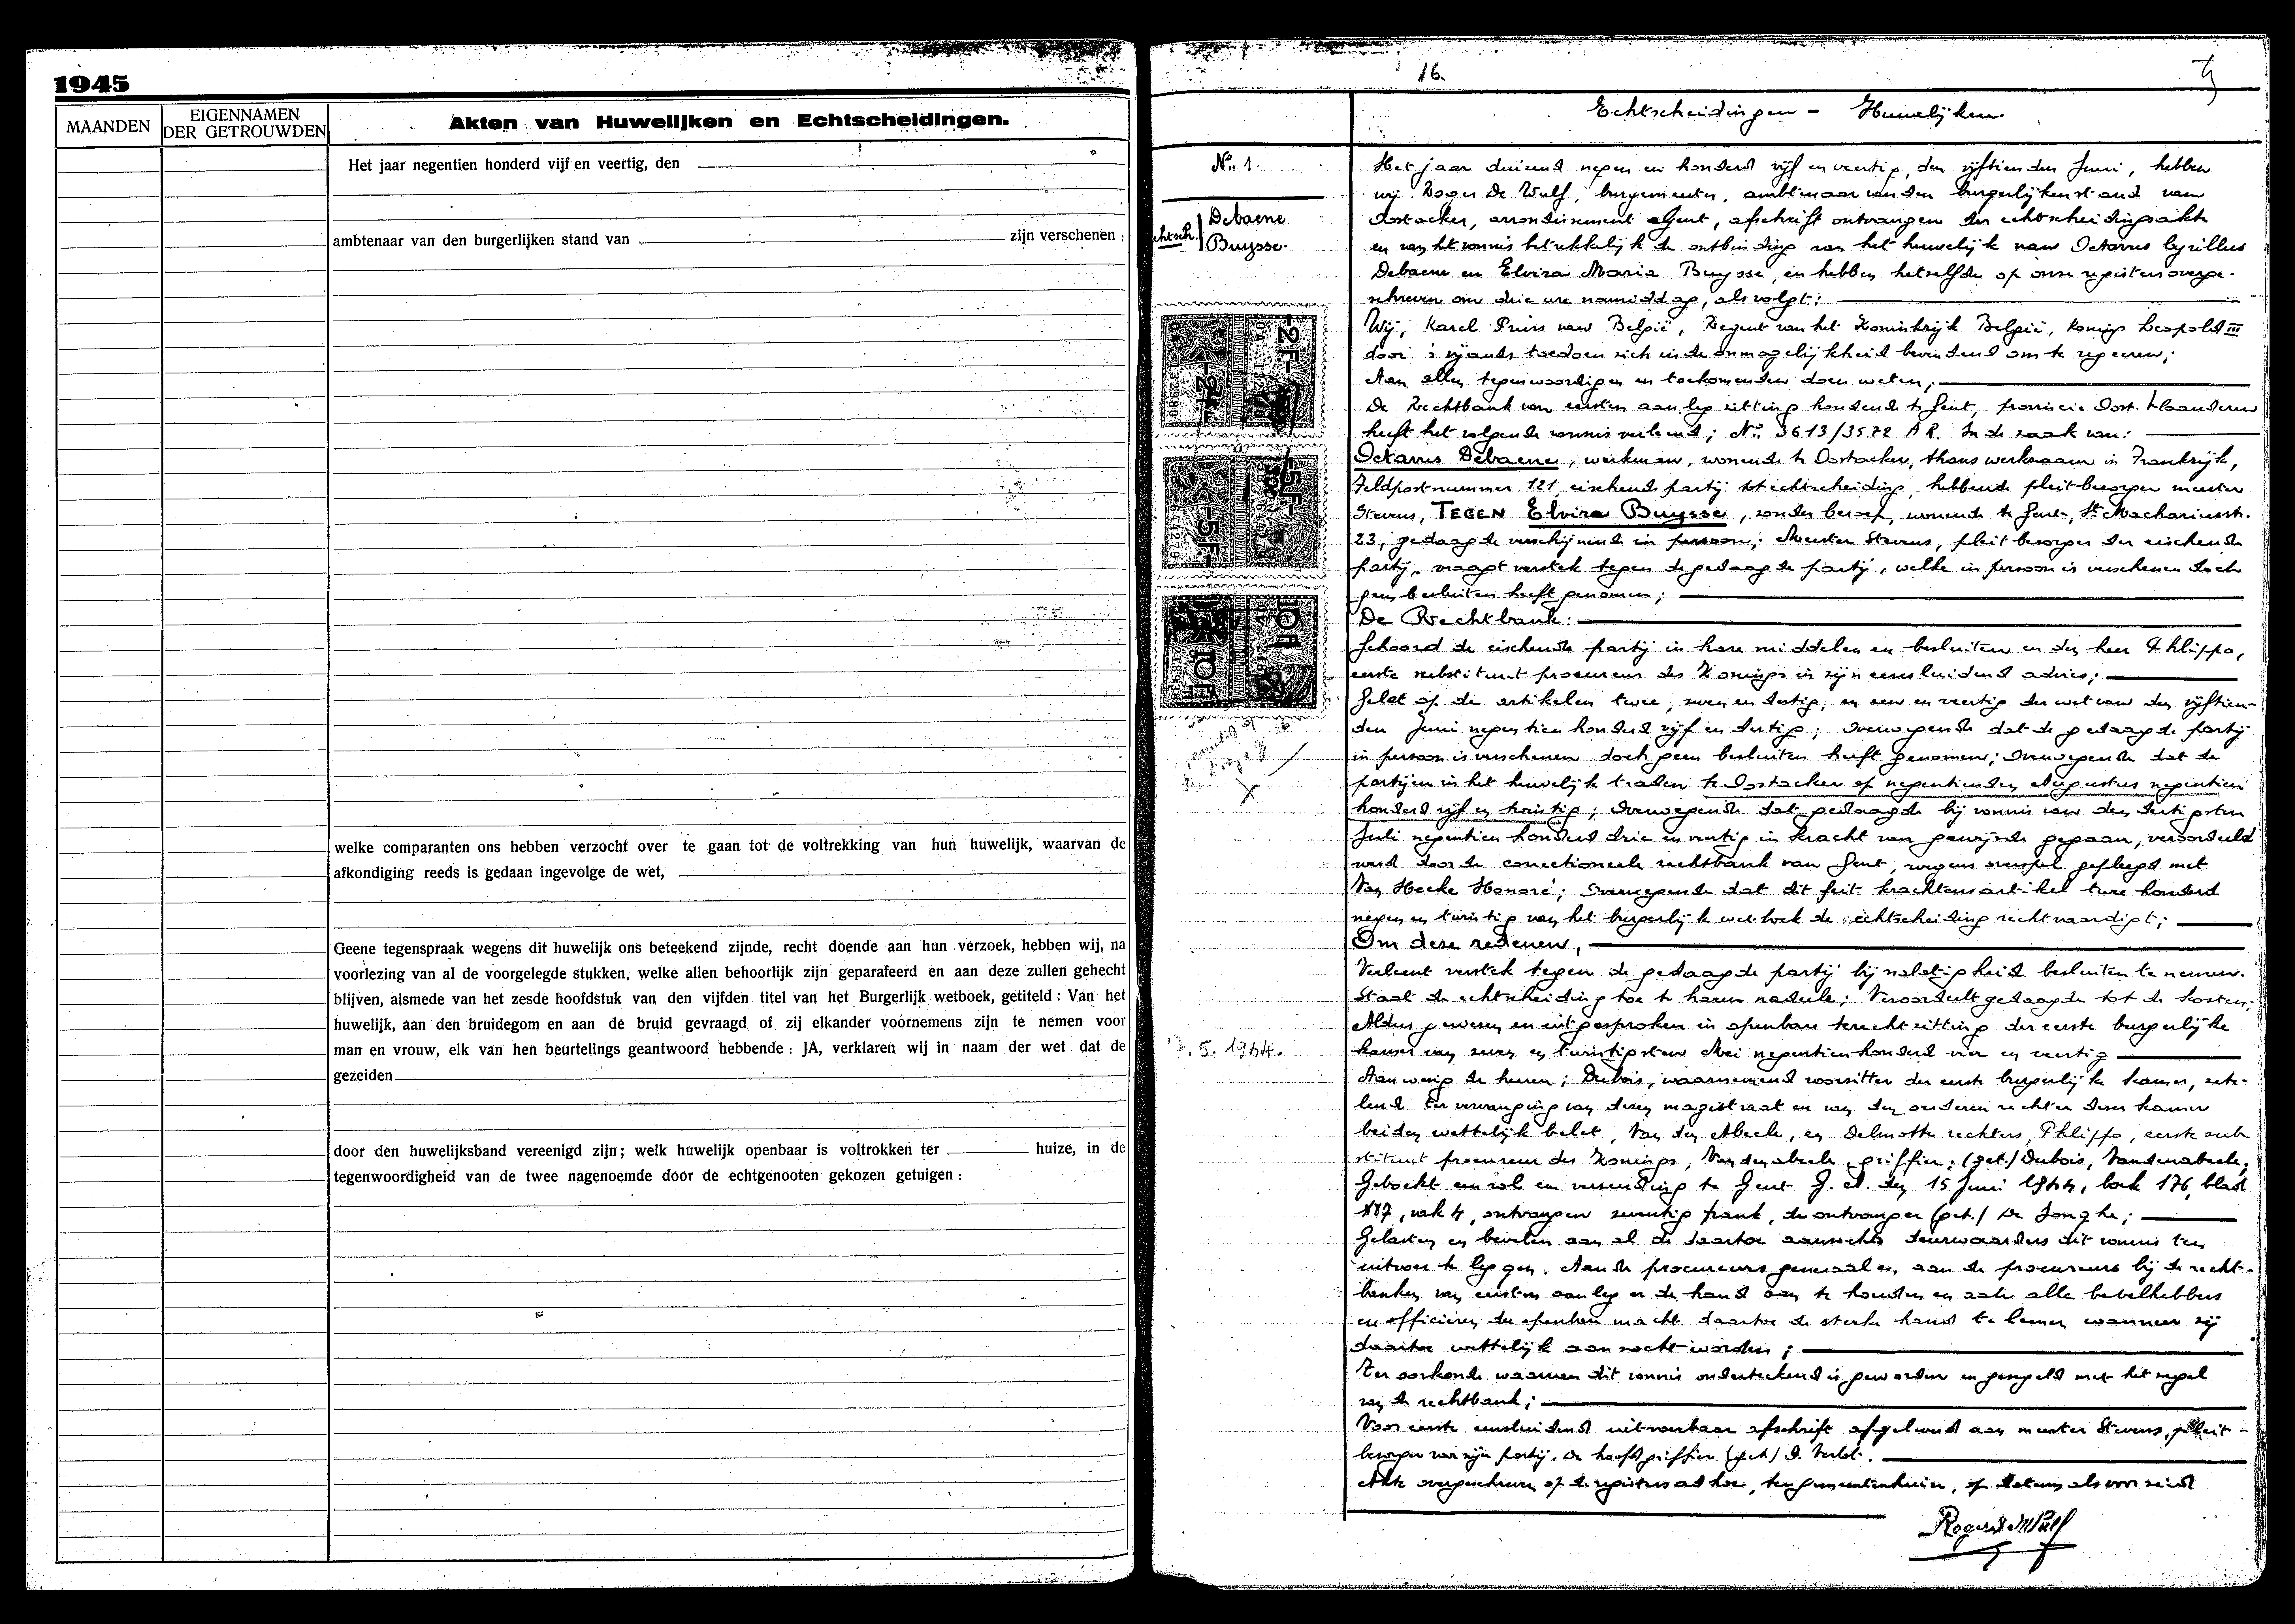 1945
MAANDEN
EIGENNAMEN
DER GETROUWDEN
Akten van Huwelijken en Echtscheidingen.
Het jaar negentien honderd vijf en veertig, den
ambtenaar van den burgerlijken stand van zijn verschenen :
welke comparanten ons hebben verzocht over te gaan tot de voltrekking van hun huwelijk, waarvan de
afkondiging reeds is gedaan ingevolge de wet,
Geene tegenspraak wegens dit huwelijk ons beteekend zijnde, recht doende aan hun verzoek, hebben wij, na
voorlezing van al de voorgelegde stukken, welke allen behoorlijk zijn geparafeerd en aan deze zullen gehecht
blijven, alsmede van het zesde hoofdstuk van den vijfden titel van het Burgerlijk wetboek, getiteld : Van het
huwelijk, aan den bruidegom en aan de bruid gevraagd of zij elkander voornemens zijn te nemen voor
man en vrouw, elk van hen beurtelings geantwoord hebbende : JA, verklaren wij in naam der wet dat de
gezeiden
door den huwelijksband vereenigd zijn; welk huwelijk openbaar is voltrokken ter huize, in de
tegenwoordigheid van de twee nagenoemde door de echtgenooten gekozen getuigen :
16.
Echtscheidingen - Huwelijken.
No. 1.
echtsch. Debaene
Buysse.
2F.
5F.
10F
7.5.1944.
Het jaar duizend negen en honderd vijf en veertig, den vijftienden Juni, hebben
wij Roger De Wulf, burgemeester, ambtenaar van den burgerlijken stand van
Oostacker, arrondissement Gent, afschrift ontvangen der echtscheidingsakte
en van het vonnis betrekkelijk de ontbinding van het huwelijk van Octavus Cyrillus
Debaene en Elvira Maria Buysse, en hebben hetzelfde op onze registers overge-
schreven om drie ure namiddag, als volgt:
Wij, Karel Prins van België, Regent van het Koninkrijk België, Konings Leopold III
door 's vijands toedoen zich in de onmogelijkheid bevindend om te regeeren;
Aan allen tegenwoordigen en toekomenden doen weten;
De Rechtbank van eersten aanleg zitting houdende te Gent, provincie Oost-Vlaanderen
heeft het volgende vonnis verleend; No. 3613/3572 A R. In de zaak van:
Octavus Debaene, werkman, wonende te Oostacker, thans werkzaam in Frankrijk,
Feldpostnummer 121, eischende partij tot echtscheiding, hebbende pleitbezorger meester
Stevens, TEGEN Elvira Buysse, zonder beroep, wonende te Gent, St. Machariusstr.
23, gedaagde verschijnende in persoon; Meester Stevens, pleitbezorger der eischende
partij, vraagt verstek tegen de gedaagde partij, welke in persoon is verschenen doch
geen besluiten heeft genomen;
De Rechtbank:
Gehoord de eischende partij in hare middelen en besluiten en den heer Phlippo,
eerste substituut procureur des Konings in zijn eensluidend advies;
Gelet op de artikelen twee, zeven en dertig, en een en veertig der wet van den vijftien-
den Juni negentien honderd vijf en dertig; Overwegende dat de gedaagde partij
in persoon is verschenen doch geen besluiten heeft genomen; Overwegende dat de
partijen in het huwelijk traden te Oostacker op negentienden Augustus negentien
honderd vijf en twintig; Overwegende dat gedaagde bij vonnis van den dertigsten
Juli negentien honderd drie en veertig in kracht van gewijsde gegaan, veroordeeld
werd door de correctioneele rechtbank van Gent, wegens overspel gepleegd met
Van Hecke Honoré; Overwegende dat dit feit krachtens artikel twee honderd
negen en twintig van het burgerlijk wetboek de echtscheiding rechtvaardigt;
Om deze redenen,
Verleent verstek tegen de gedaagde partij bij nalatigheid besluiten te nemen.
Staat de echtscheiding toe te haren nadeele; Veroordeelt gedaagde tot de kosten;
Aldus gewezen en uitgesproken in openbare terechtzitting der eerste burgerlijke
kamer van zeven en twintigsten Mei negentien honderd vier en veertig
Aanwezig de heeren; Dubois, waarnemend voorzitter der eerste burgerlijke kamer, zete-
lend ter vervanging van dezen magistraat en van den anderen rechter dezer kamer
beiden wettelijk belet, Van den Abeele, en Delmotte rechters, Phlippo, eerste sub
stituut procureur des Konings, Vandenabeele, griffier; (get.) Dubois, Vandenabeele;
Geboekt een rol een verzending te Gent G. A. den 15 Juni 1944, boek 176, blad
187, vak 4, ontvangen zeventig frank, de ontvanger (get.) De Jonghe;
Gelasten en bevelen aan al de daartoe aanzochte deurwaarders dit vonnis ten
uitvoer te leggen. Aan de procureurs generaal en aan de procureurs bij de recht-
banken van eersten aanleg er de hand aan te houden en aan alle bevelhebbers
en officieren der openbare macht daartoe de sterke hand te leenen wanneer zij
daartoe wettelijk aanzocht worden;
Ter oorkonde waarvan dit vonnis onderteekend is geworden en gezegeld met het zegel
van de rechtbank;
Voor eerste eensluidend uitvoerbaar afschrift afgeleverd aan meester Stevens, pleit-
bezorger voor zijn partij. De hoofdgriffier (get.)
Akte overgeschreven op de registers ad hoc, ten gemeentenhuize, op datum als voorzeid
Roger De Wulf